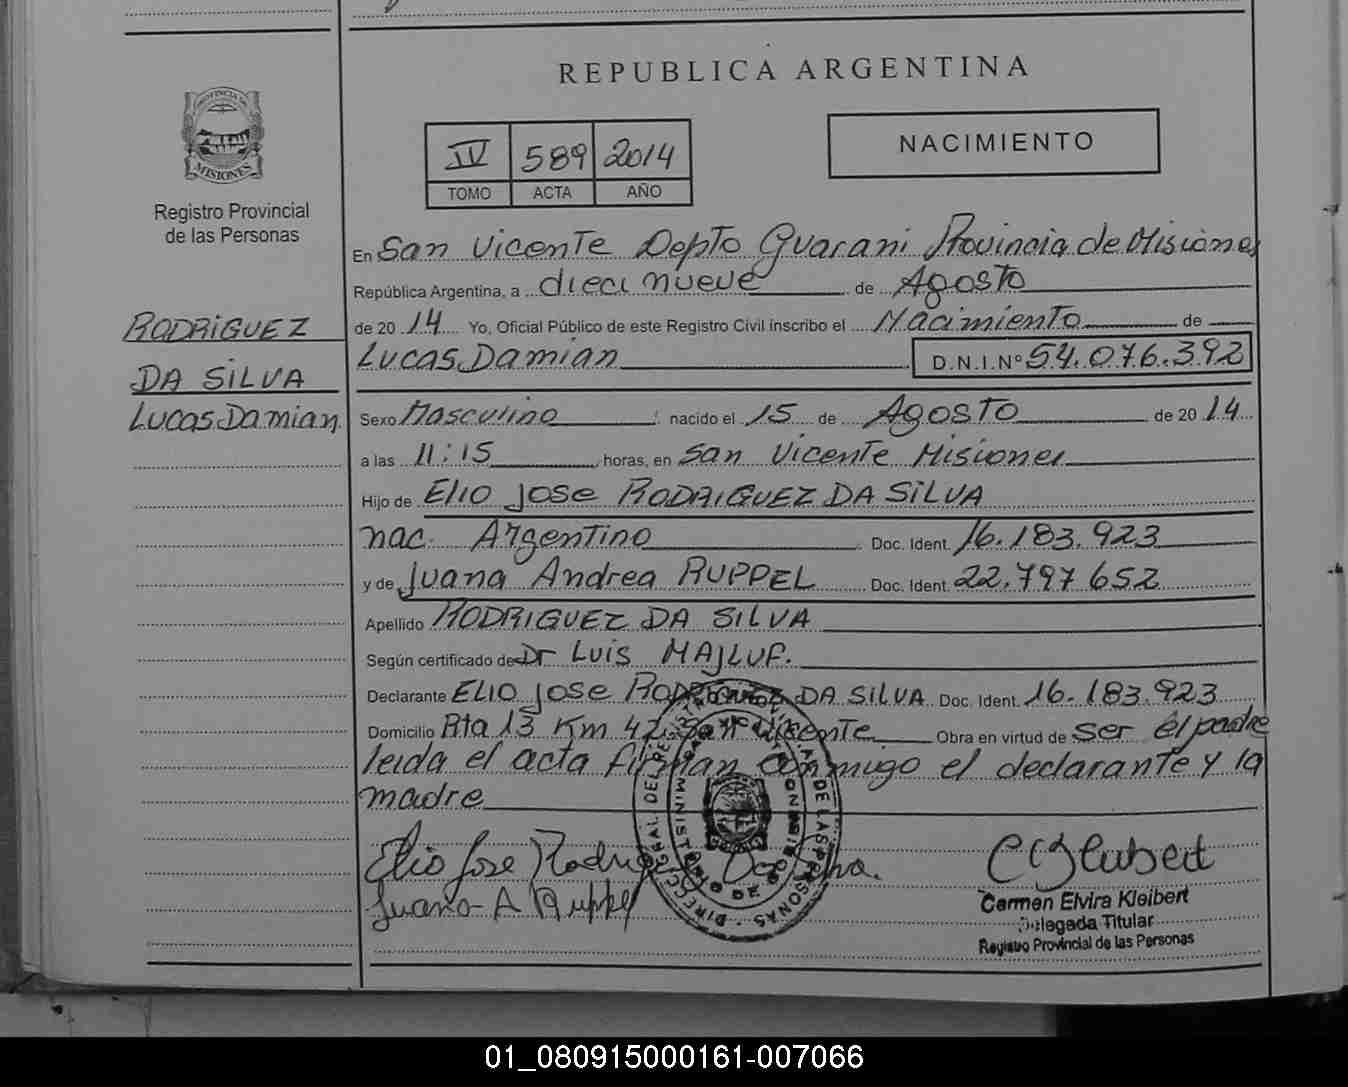 REPUBLICA ARGENTINA
PROVINCIA DE
MISIONES
Registro Provincial
de las Personas
IV 589 2014
TOMO ACTA AÑO
NACIMIENTO
RODRIGUEZ
DA SILVA
Lucas Damian
En San Vicente Depto Guarani Provincia de Misiones
República Argentina, a dieci nueve de Agosto
de 20 14 Yo, Oficial Público de este Registro Civil inscribo el Nacimiento de
Lucas Damian D.N.I.Nº 54.076.392
Sexo Masculino nacido el 15 de Agosto de 20 14
a las 11:15 horas, en San Vicente Misiones
Hijo de Elio Jose RODRIGUEZ DA SILVA
nac. Argentino Doc. Ident. 16.183.923
y de Juana Andrea RUPPEL Doc. Ident. 22.797 652
Apellido RODRIGUEZ DA SILVA
Según certificado de Dr Luis MAJLUF.
Declarante ELIO Jose RODRIGUEZ DA SILVA Doc. Ident. 16.183.923
Domicilio Rta 13 Km 42 San Vicente Obra en virtud de ser el padre
leida el acta firman conmigo el declarante y la
madre
Elio Jose Rodriguez Da Silva.
Juana A Ruppel
Carmen Elvira Kleibert
Delegada Titular
Registro Provincial de las Personas
01_080915000161-007066